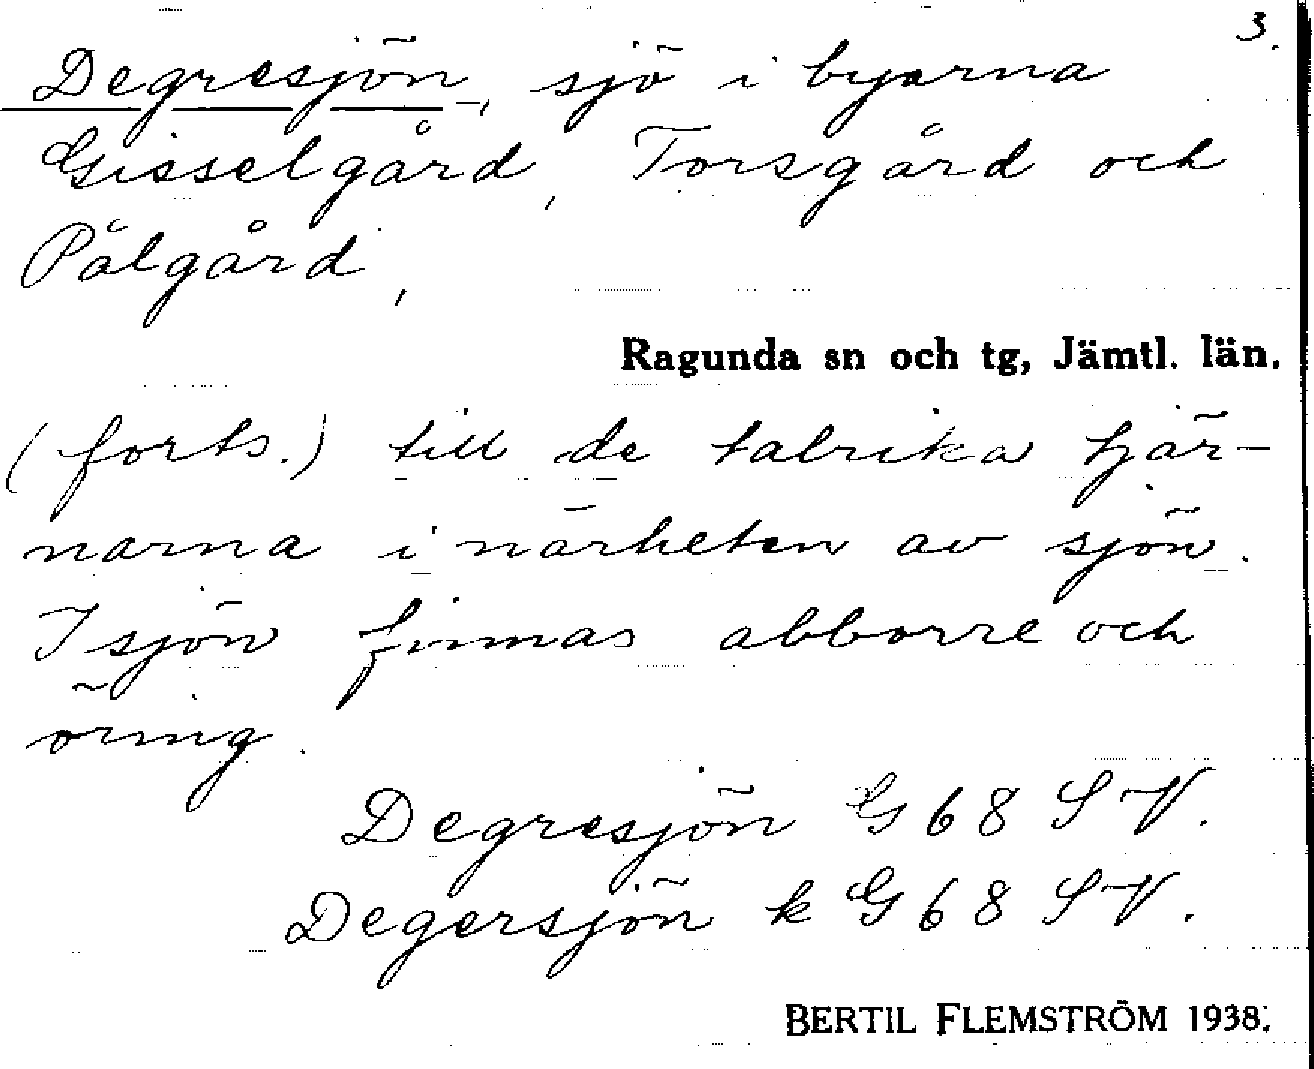 3.
Degresjön, sjö i byarna
Gisselgård, Torsgård och
Pålgård,
Ragunda sn och tg, Jämtl. län.
(forts.) till de talrika tjär-
narna i närheten av sjön.
I sjön finnas abborre och
öring.
Degresjön G 68 SV.
Degersjön k G 68 SV.
BERTIL FLEMSTRÖM 1938.